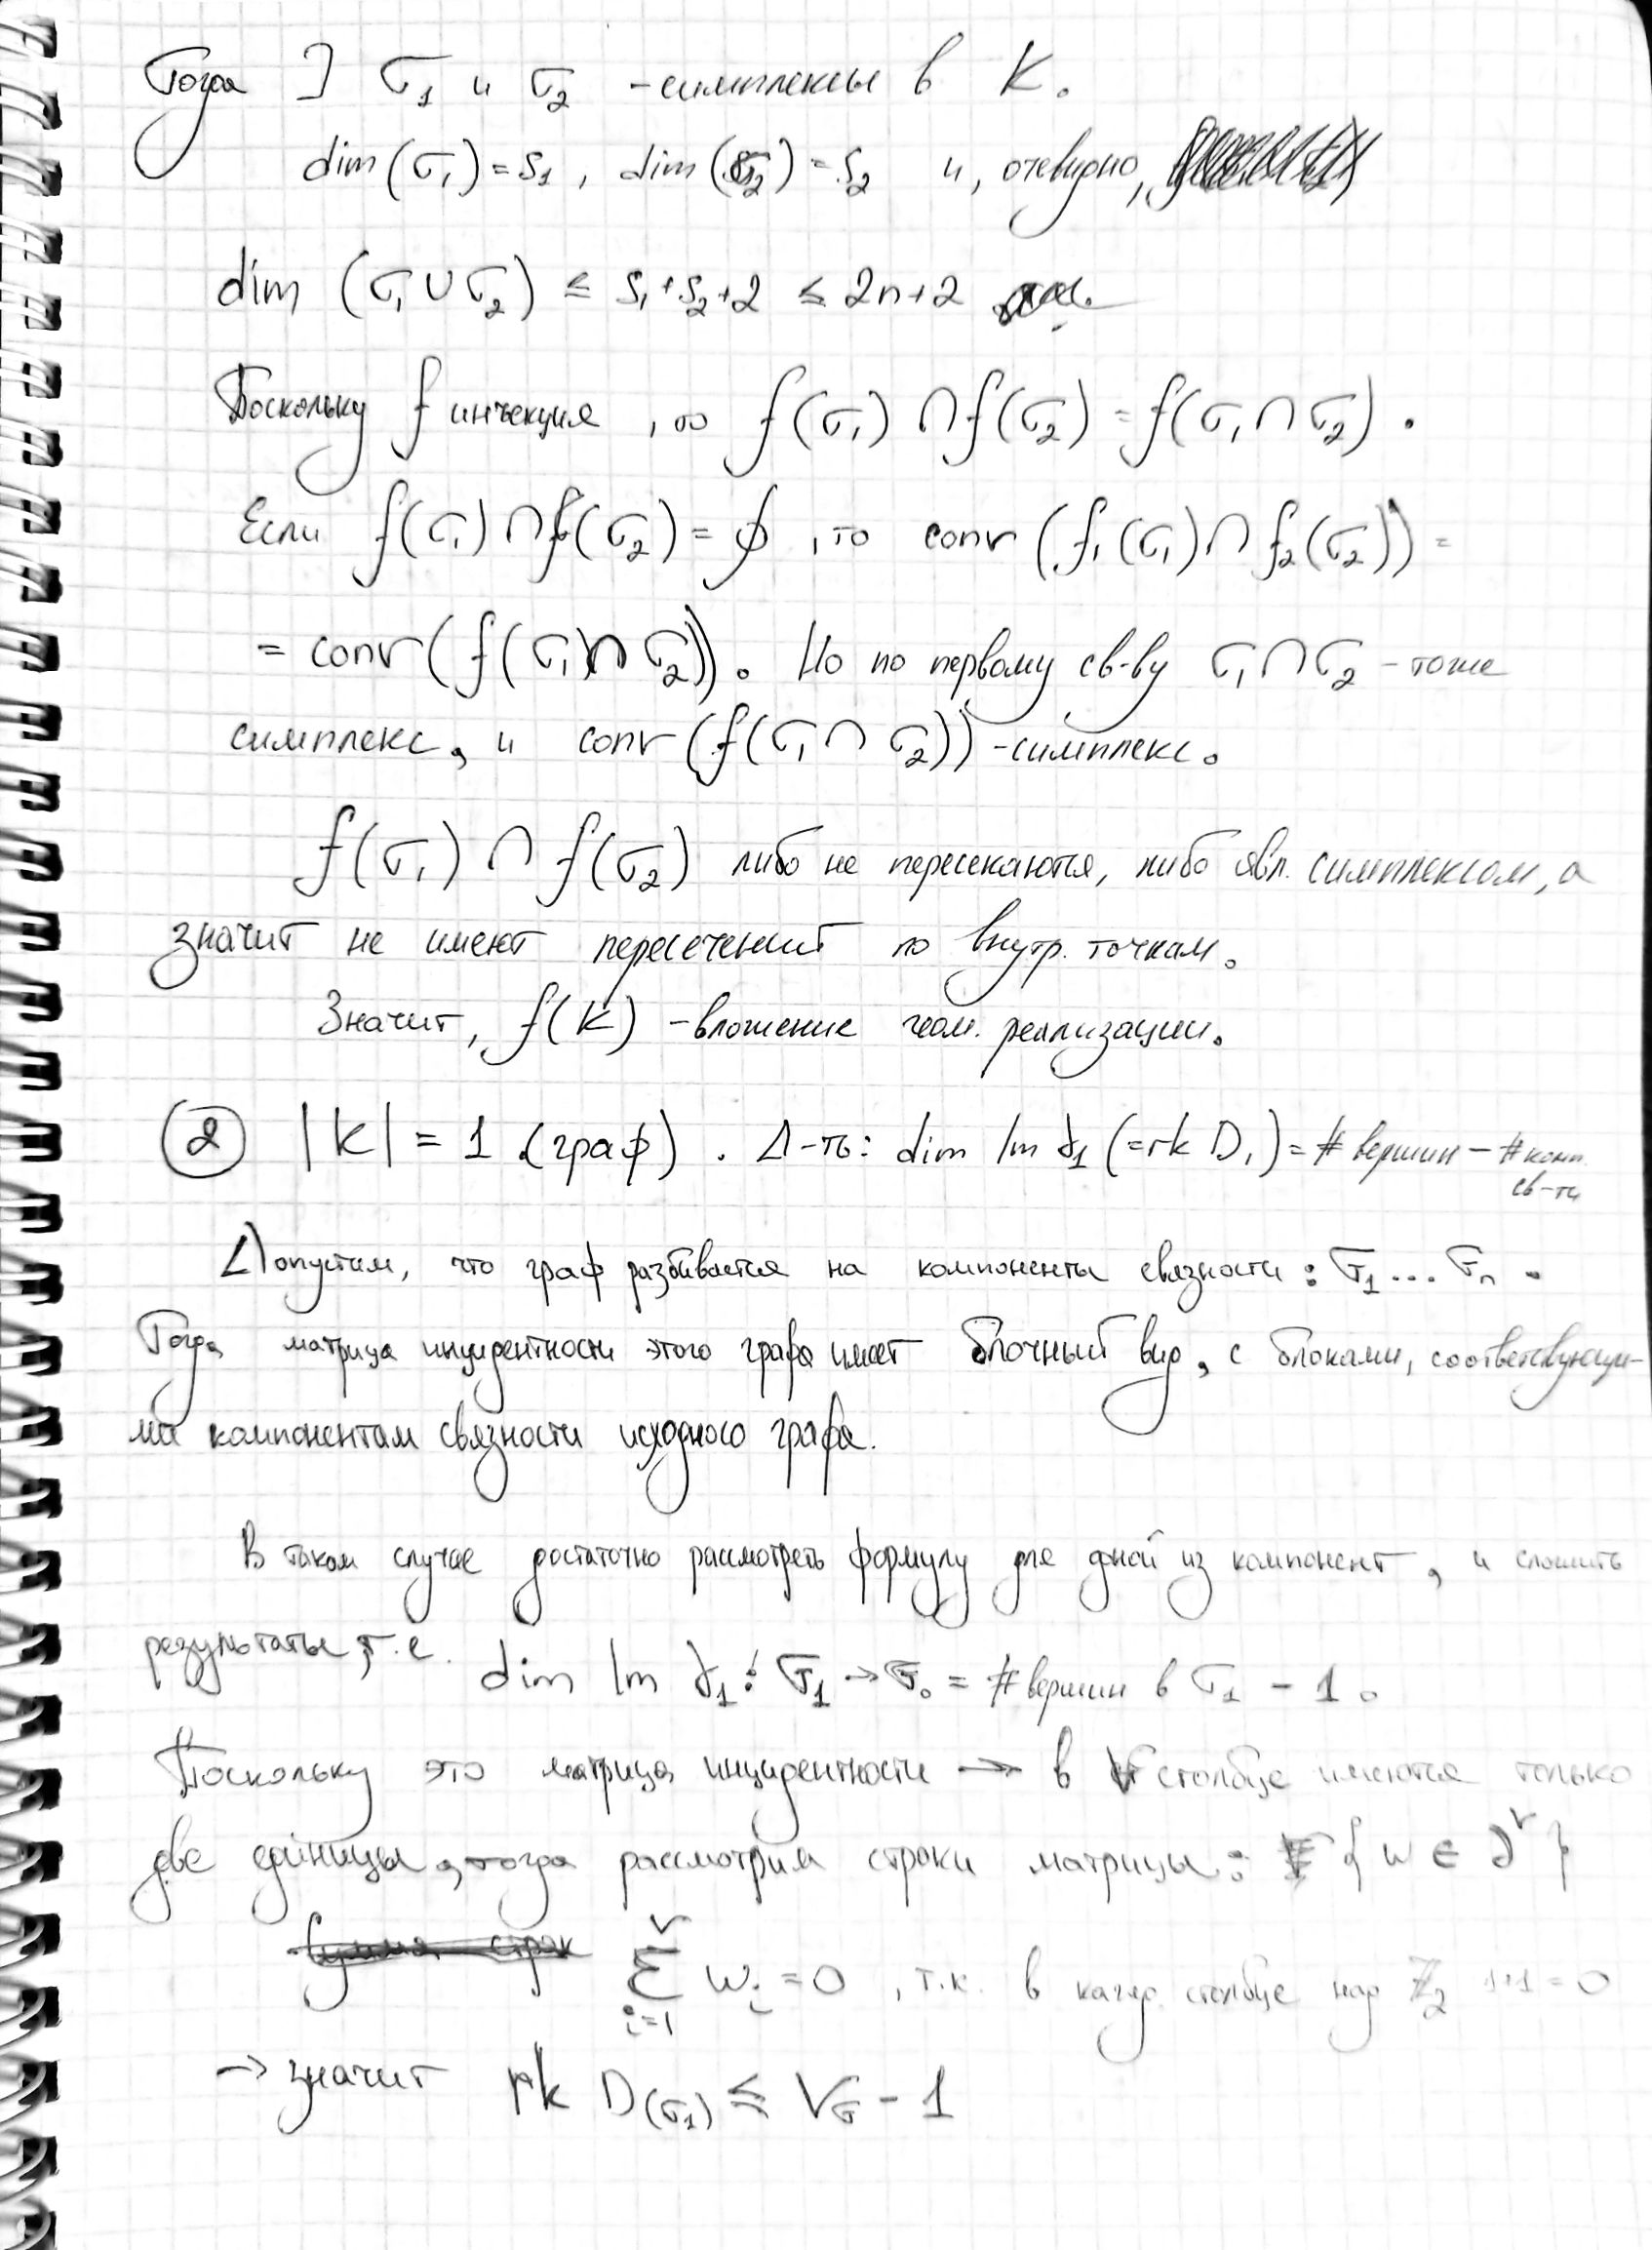 Тогда ] σ₁ и σ₂ - симплексы в K.
dim(σ₁) = S₁, dim(σ₂) = S₂ и, очевидно,
dim (σ₁ ∪ σ₂) ≤ S₁ + S₂ + 2 ≤ 2n+2
Поскольку f инъекция, то f(σ₁) ∩ f(σ₂) = f(σ₁ ∩ σ₂).
Если f(σ₁) ∩ f(σ₂) = ∅, то conv (f₁(σ₁) ∩ f₂(σ₂)) =
= conv (f(σ₁ ∩ σ₂)). Но по первому св-ву σ₁ ∩ σ₂ - тоже
симплекс, и conv (f(σ₁ ∩ σ₂)) - симплекс.
f(σ₁) ∩ f(σ₂) либо не пересекаются, либо явл. симплексом, а
значит не имеют пересечений по внутр. точкам.
Значит, f(K) - вложение геом. реализации.
② |K| = 1 (граф). Д-ть: dim Im ∂₁ (= rk D₁) = # вершин - # комп.
св-ти
Допустим, что граф разбивается на компоненты связности: σ₁ ... σₙ.
Тогда матрица инцидентности этого графа имеет блочный вид, с блоками, соответствующи-
ми компонентам связности исходного графа.
В таком случае достаточно рассмотреть формулу для одной из компонент, и сложить
результаты, т.е. dim Im ∂₁: σ₁ → σ₀ = # вершин в σ₁ - 1.
Поскольку это матрица инцидентности → в ∀ столбце имеются только
две единицы, тогда рассмотрим строки матрицы: { w ∈ ∂ᵛ }
∑ᵢ₌₁ᵛ wᵢ = 0, т.к. в кажд. столбце над ℤ₂ 1+1=0
→ значит rk D(σ₁) ≤ V_G - 1